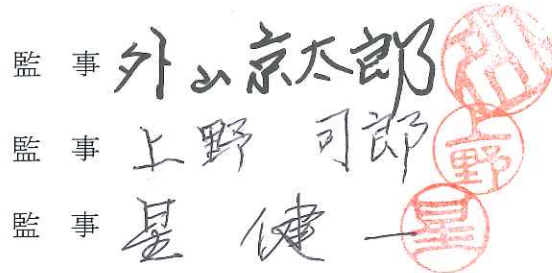 監事 外山京太郎
監事 上野司郎 上野
監事 星健一 星